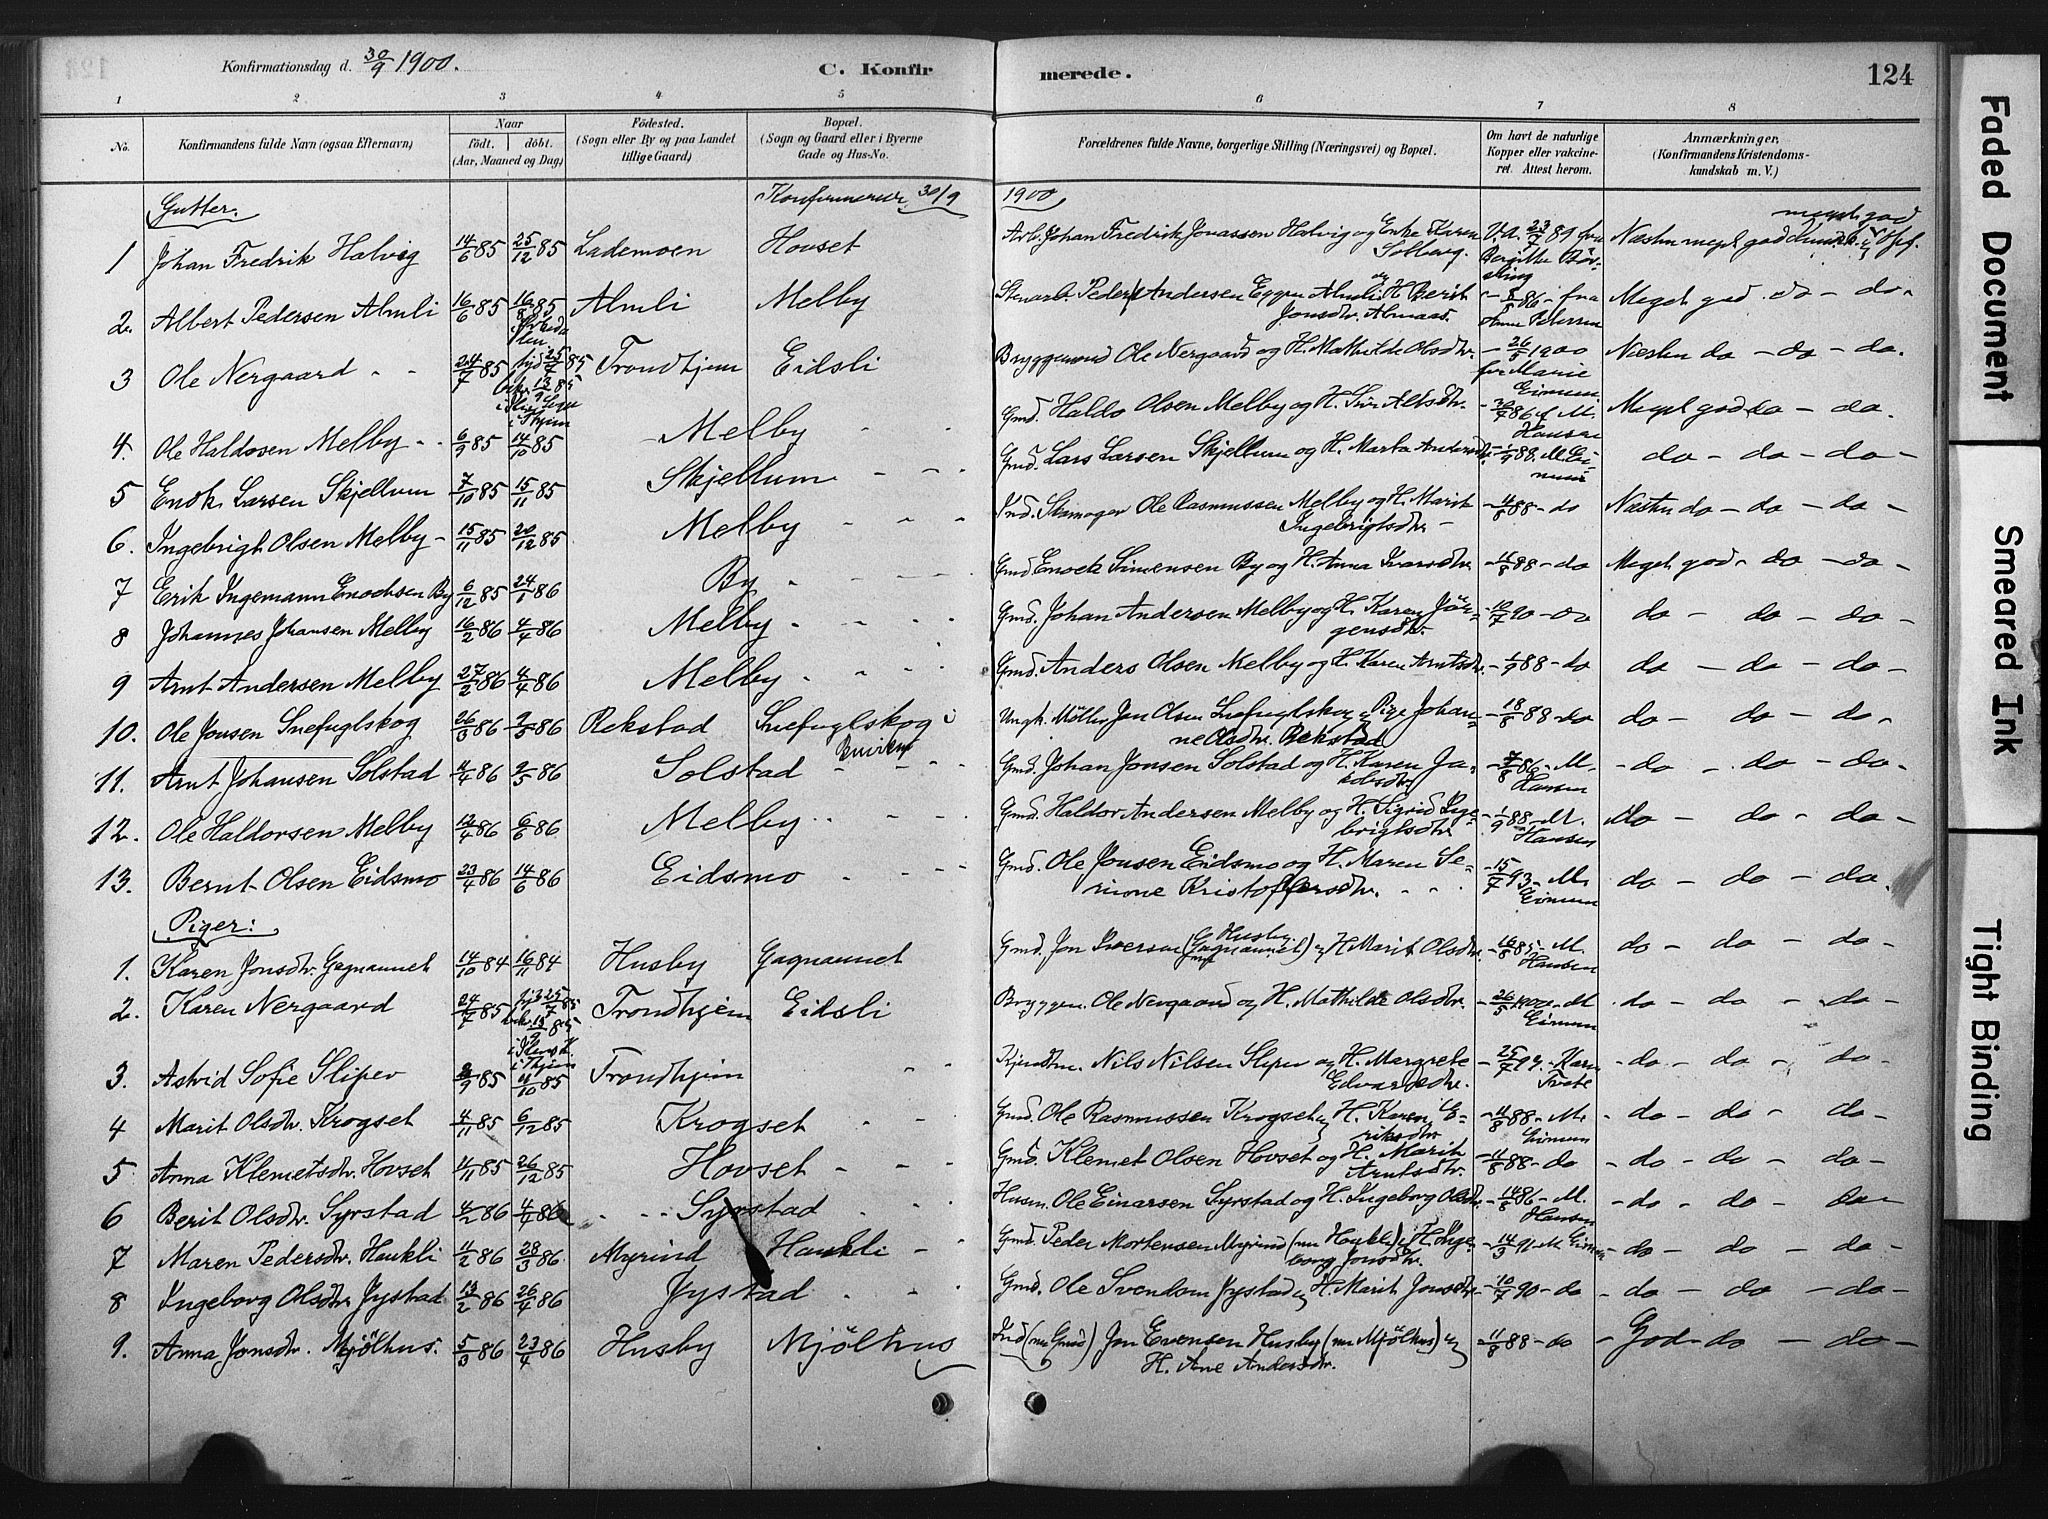 Konfirmationsdag d. 30/9 1900. C. Konfirmerede. 124
1 2 3 4 5 6 7 8
No. Konfirmandens fulde Navn (ogsaa Efternavn) Naar födt. döbt. (Aar, Maaned og Dag) Födested. (Sogn eller By og paa Landet tillige Gaard) Bopæl. (Sogn og Gaard eller i Byerne Gade og Hus-No. Forældrenes fulde Navne, borgerlige Stilling (Næringsvei) og Bopæl. Om havt de naturlige Kopper eller vakcineret. Attest herom. Anmærkninger. (Konfirmandens Kristendomskundskab m. V.)
Gutter. Konfirmerede 30/9 1900
1 Johan Fredrik Halvig 14/6 85 25/12 85 Lademoen Hovset Arb. Johan Fredrik Jonassen Halvig og Enke Karen Solberg. V.a. 23/7 89 fra Bergitte Næsten meget god
2. Albert Pedersen Almli 16/6 85 16/8 85 Almli Melby Stenarb. Peder Andersen Eggen Almli og H. Berit Jonsdtr. Almaas. 86 - fra Anne Petersen Meget god - do - do -
3 Ole Nergaard 24/7 85 25/7 85 Trondhjem Eidsli Bryggemand Ole Nergaard og H. Mathilde Olsdtr. - 26/5 1900 for Marie Eimun Næsten do - do - do.
4. Ole Haldosen Melby 6/9 85 14/10 85 Melby Gmd. Haldo Olsen Melby og H. Siri Alksdtr. 86 f. M. Hansen Meget god do - do.
5 Enok Larsen Skjellum 7/10 85 15/11 85 Skjellum Gmd. Lars Larsen Skjellum og H. Marta Andersdtr. - 1/9 88. M. Eimun do - do - do -
6. Ingebrigt Olsen Melby 15/11 85 20/12 85 Melby Ind. Skomager Ole Rasmussen Melby og H. Marit Ingebrigtsdtr. - 88 - do Næsten do - do - do -
7 Erik Ingemann Enochsen By 6/12 85 24/1 86 By Gmd. Enock Simensen By og H. Anna Ivarsdtr. - 11/8 88 - do Meget god - do - do -
8 Johannes Johansen Melby 16/2 86 4/4 86 Melby Gmd. Johan Andersen Melby og H. Karen Jörgensdtr. - 10/7 90 - do do - do - do -
9 Arnt Andersen Melby 27/2 86 4/4 86 Melby Gmd. Anders Olsen Melby og H. Karen Arntsdtr. - 1/9 88 - do do - do - do -
10. Ole Jonsen Snefuglskog 26/3 86 2/5 86 Rekstad Snefuglskog i Buvikem Ungk. Möller Jon Olsen Snefuglskog og Pige Johanne Olsdtr. Rekstad - 18/8 88 - do do - do - do -
11. Arnt Johansen Solstad 4/4 86 2/5 86 Solstad Gmd. Johan Jonsen Solstad og H. Karen Jakobsdtr. - 7/8 86 - M. Hansen - do - do - do -
12. Ole Haldorsen Melby 12/4 86 6/6 86 Melby Gmd. Haldor Andersen Melby og H. Sigrid Ingebrigtsdtr. - 1/9 88 - M. Hansen do - do - do -
13. Bernt Olsen Eidsmo 23/4 86 14/6 86 Eidsmo Gmd. Ole Jonsen Eidsmo og H. Maren Serione Kristoffersdtr. - 15/7 93 - M. Eimun do - do - do.
Piger:
1. Karen Jonsdtr. Gagnaunet 14/10 84 16/11 84 Husby Gagnaunet Gmd. Jon Iversen Husby (Gagnaunet) og H. Marit Olsdtr. - 16/8 85 - M. Hansen do - do - do -
2. Karen Nergaard 24/7 85 25/7 85 Trondhjem Eidsli Bryggem. Ole Nergaard og H. Mathilde Olsdtr. - 26/5 1900 - M Eimun - do - do - do -
3. Astrid Sofie Sliper 85 11/10 85 Trondhjem Nils Nilsen Sliper og H. Margrete Edvardsdtr. - 25/7 Karen Tvete - do - do - do -
4 Marit Olsdtr. Krogset 4/11 85 6/12 85 Krogset Gmd. Ole Rasmussen Krogset og H. Karen Eriksdtr - 11/8 88 - M. Eimun - do - do - do -
5 Anna Klemetsdtr. Hovset 4/11 85 26/12 85 Hovset Gmd. Klemet Olsen Hovset og H. Marit Arntsdtr. - 11/8 88 - do - do - do - do -
6 Berit Olsdtr. Syrstad 4/2 86 4/4 86 Syrstad Husm. Ole Einarsen Syrstad og H. Ingeborg Olsdtr. - 14/8 86 - M. Hansen - do - do - do -
7 Maren Pedersdtr. Haukli 4/2 86 28/3 86 Myrind Haukli Gmd. Peder Mortensen Myrind (nu Haukli) og H. Ingeborg Jonsdtr. - 14/3 91 - M Eimun do - do - do -
8 Ingeborg Olsdtr. Jystad 13/2 86 26/4 86 Jystad Gmd. Ole Svendsen Jystad og H. Marit Jonsdtr. - 10/7 90 - do - do - do - do -
9. Anna Jonsdtr. Mjölhus. 5/3 86 23/4 86 Husby Mjölhus Ind (nu Gmd) Jon Evensen Husby (nu Mjölhus) og H. Ane Andersdtr. - 11/8 88 - do - God - do - do -
Faded Document
Smeared Ink
Tight Binding